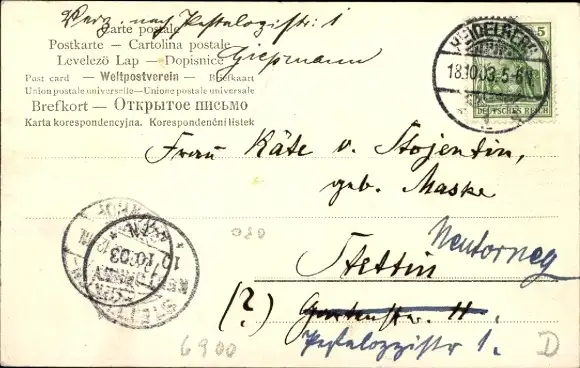 Verz. nach Pestalozzistr: 1
Giessmann
Carte postale
Postkarte — Cartolina postale
Levelező Lap — Dopisnice
Post card — Weltpostverein — Briefkaart
Union postale universelle — Unione postale universale
Brefkort — Открытое письмо
Karta korespondencyjna. Korespondenční listek
HEIDELBERG
18.10.03. 5-6N
5
DEUTSCHES REICH
Frau Käte v. Stojentin,
geb. Maske
Stettin
Neutorney
(?) Gartenstr. 11.
Pestalozzistr 1.
STETTIN
10.03
080
6900
D